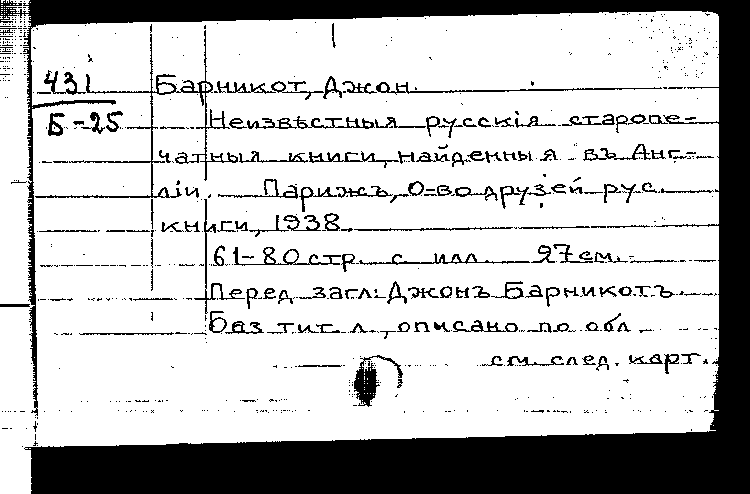 431 Барникот, Джон.
Б-25 Неизвѣстныя русскія старопе-
чатныя книги, найденныя въ Анг-
лiи. Парижъ, О-во друзей рус.
книги, 1938.
61-80 стр. с илл. 27 см.
Перед загл: Джонъ Барникотъ.
Без тит. л., описано по обл.
см. след. карт.